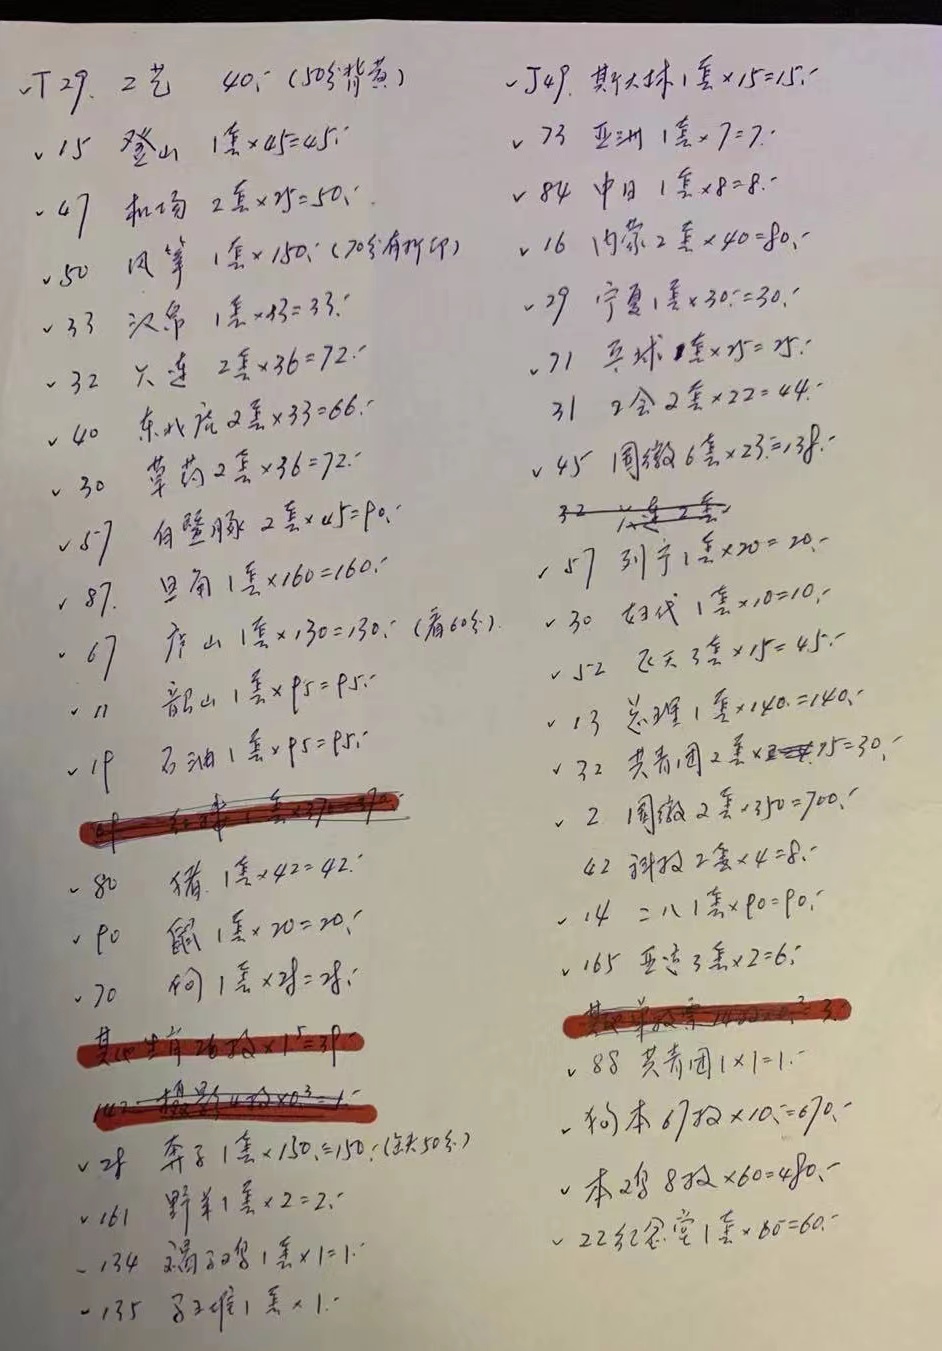 T29. 工艺 40.- (50分背黄)
15 登山 1套×45=45.-
47 机场 2套×25=50.-
50 风筝 1套×150.- (70分有折印)
33 汉帛 1套×33=33.-
32 大连 2套×36=72.-
40 东北虎 2套×33=66.-
30 草药 2套×36=72.-
57 白暨豚 2套×45=90.-
87. 旦角 1套×160=160.-
67 庐山 1套×130=130.- (看60分)
11 韶山 1套×95=95.-
19 石油 1套×95=95.-
1套×370=370
80 猪 1套×42=42.-
90 鼠 1套×20=20.-
70 狗 1套×28=28.-
其他生肖26枚×1.5=39
142 摄影4枚×0.3=1.-
28 奔马 1套×150.=150.- (缺50分)
161 野羊 1套×2=2.-
134 褐马鸡 1套×1=1.-
135 马王堆 1套×1.-
J49. 斯大林 1套×15=15.-
73 亚洲 1套×7=7.-
84 中日 1套×8=8.-
16 内蒙 2套×40=80.-
29 宁夏 1套×30.=30.-
71 乒球 1套×25=25.-
31 2会 2套×22=44.-
45 国徽 6套×23.=138.-
32 大连 2套
57 列宁 1套×20=20.-
30 妇代 1套×10=10.-
52 飞天 3套×15=45.-
13 总理 1套×140.=140.-
32 共青团 2套×15=30.-
2 国徽 2套×350=700.-
42 科技 2套×4=8.-
14 二八 1套×90=90.-
165 亚运 3套×2=6.-
其他单枚票14枚×0.2=3.-
88 共青团 1×1=1.-
狗本 67枚×10.=670.-
本鸡 8枚×60=480.-
22 纪念堂 1套×60=60.-